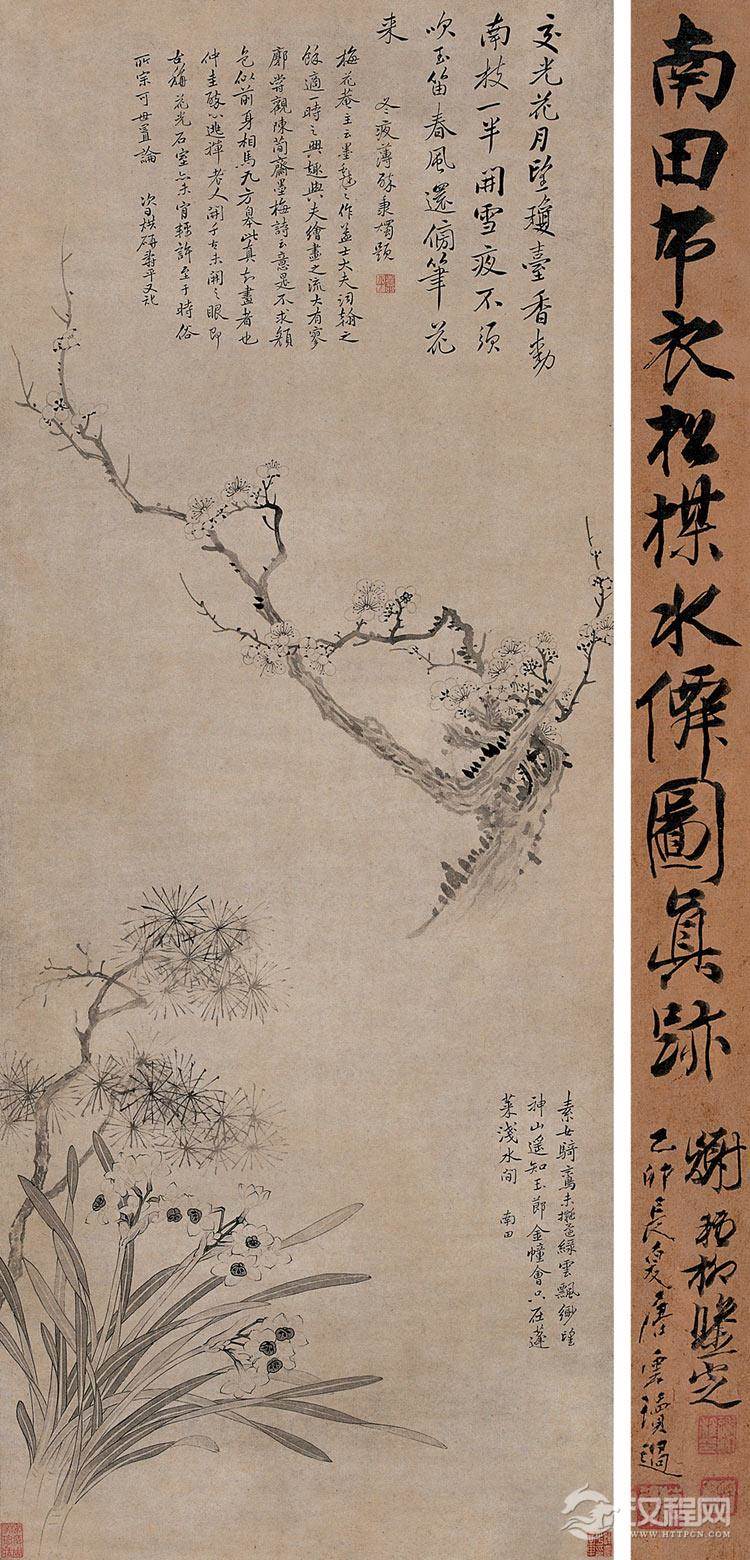 南田布衣松楳水僊圖真跡
謝稚柳鑒定
己卯長夏唐雲讀過
交光花月望瓊臺香動
南枝一半開雪夜不須
吹玉笛春風還傍筆花
来
冬夜薄醉秉燭題
梅花菴主云墨戲之作蓋士大夫詞翰之
餘適一時之興趣與夫繪畫之流大有寥
廓嘗觀陳簡齋墨梅詩云意足不求顏
色似前身相馬九方皋此真知畫者也
仲圭醉心逃禪老人開千古未開之眼即
古稱花光石室亦未肯輕許至于時俗
所宗可毋置論 次日烘研壽平又記
素女騎鸞未擬還綠雲飄緲望
神山遙知玉節金幢會只在蓬
萊淺水間 南田
汉程网
WWW.HTTPCN.COM